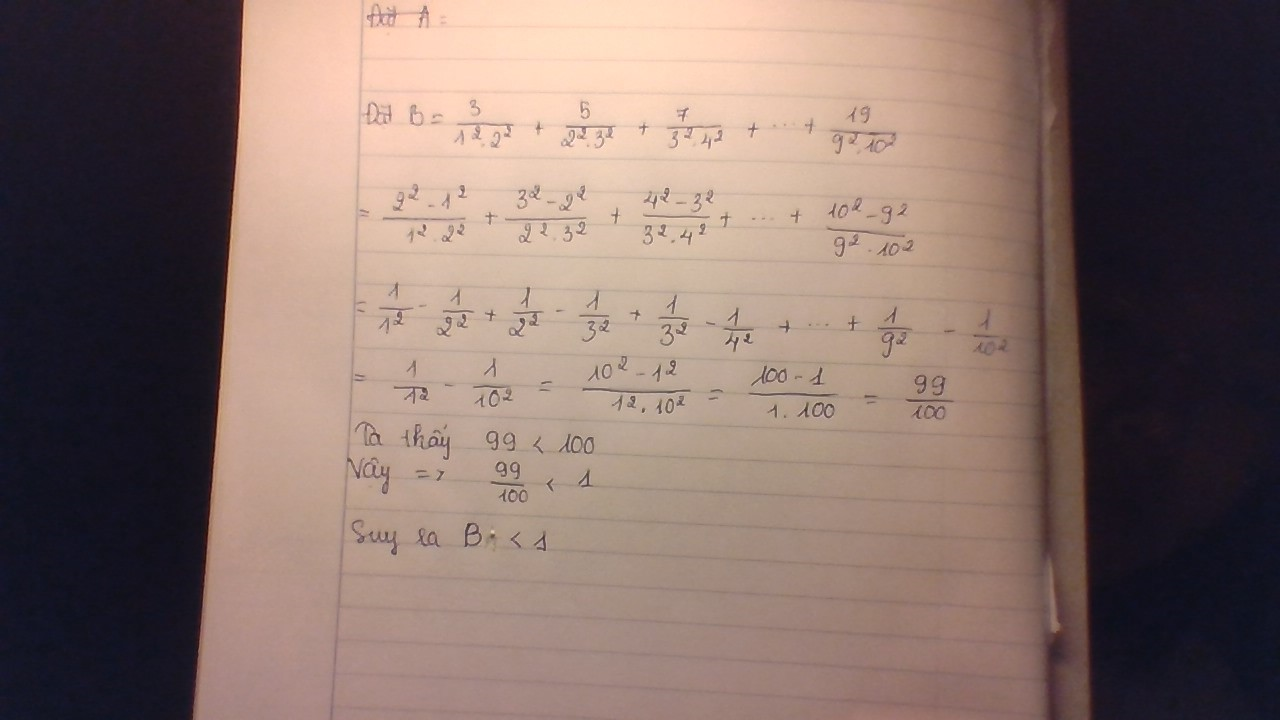 Đặt A =
Đặt B = 3/(1².2²) + 5/(2².3²) + 7/(3².4²) + ... + 19/(9².10²)
= (2² - 1²)/(1².2²) + (3² - 2²)/(2².3²) + (4² - 3²)/(3².4²) + ... + (10² - 9²)/(9².10²)
= 1/1² - 1/2² + 1/2² - 1/3² + 1/3² - 1/4² + ... + 1/9² - 1/10²
= 1/1² - 1/10² = (10² - 1²)/(1².10²) = (100 - 1)/(1.100) = 99/100
Ta thấy 99 < 100
Vây => 99/100 < 1
Suy ra B < 1